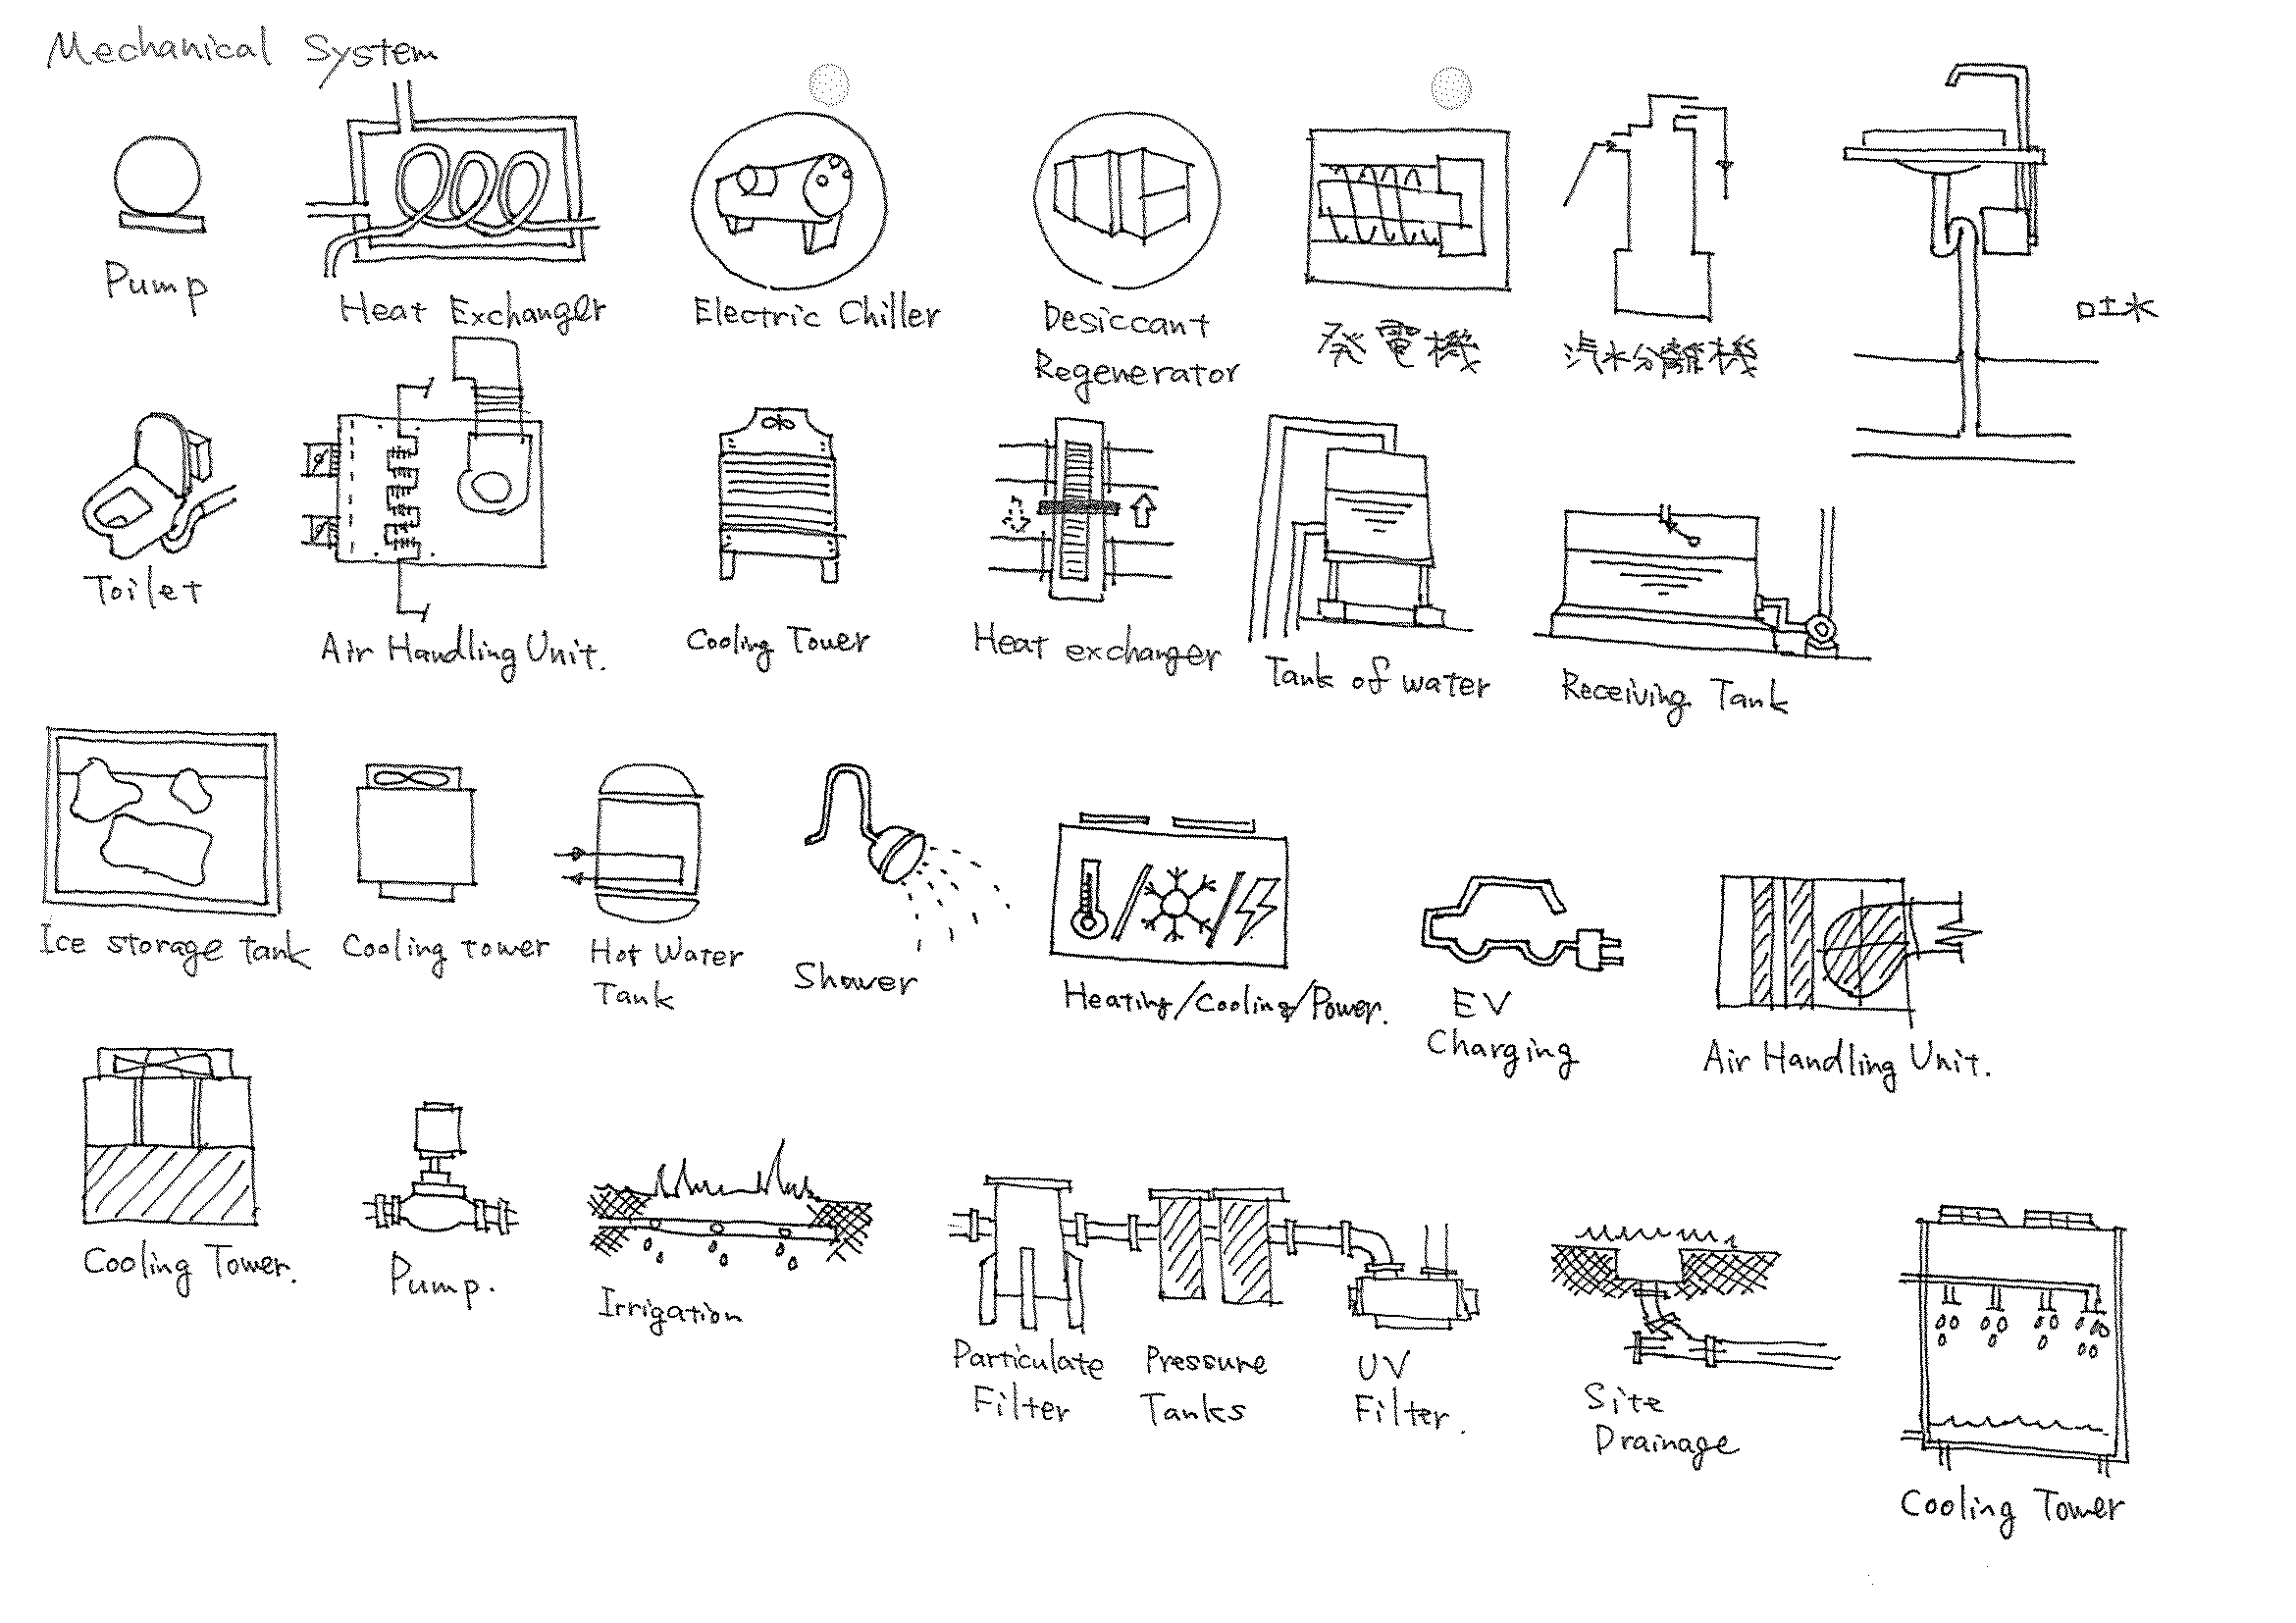 Mechanical System
Pump
Heat Exchanger
Electric Chiller
Desiccant
Regenerator
発電機
汽水分離機
吐水
Toilet
Air Handling Unit.
Cooling Tower
Heat exchanger
Tank of water
Receiving Tank
Ice storage tank
Cooling tower
Hot Water
Tank
Shower
Heating/Cooling/Power.
EV
Charging
Air Handling Unit.
Cooling Tower.
Pump.
Irrigation
Particulate
Filter
Pressure
Tanks
UV
Filter.
Site
Drainage
Cooling Tower